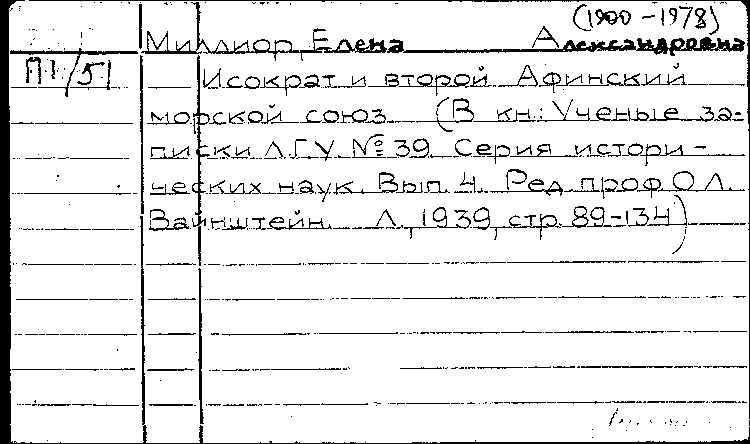 (1900 - 1978)
Миллиор, Елена Александровна
П1/51
Исократ и второй Афинский
морской союз. (В кн.: Ученые за-
писки Л.Г.У. № 39. Серия истори-
ческих наук. Вып. 4. Ред. проф О.Л.
Вайнштейн. Л., 1939, стр. 89-134)